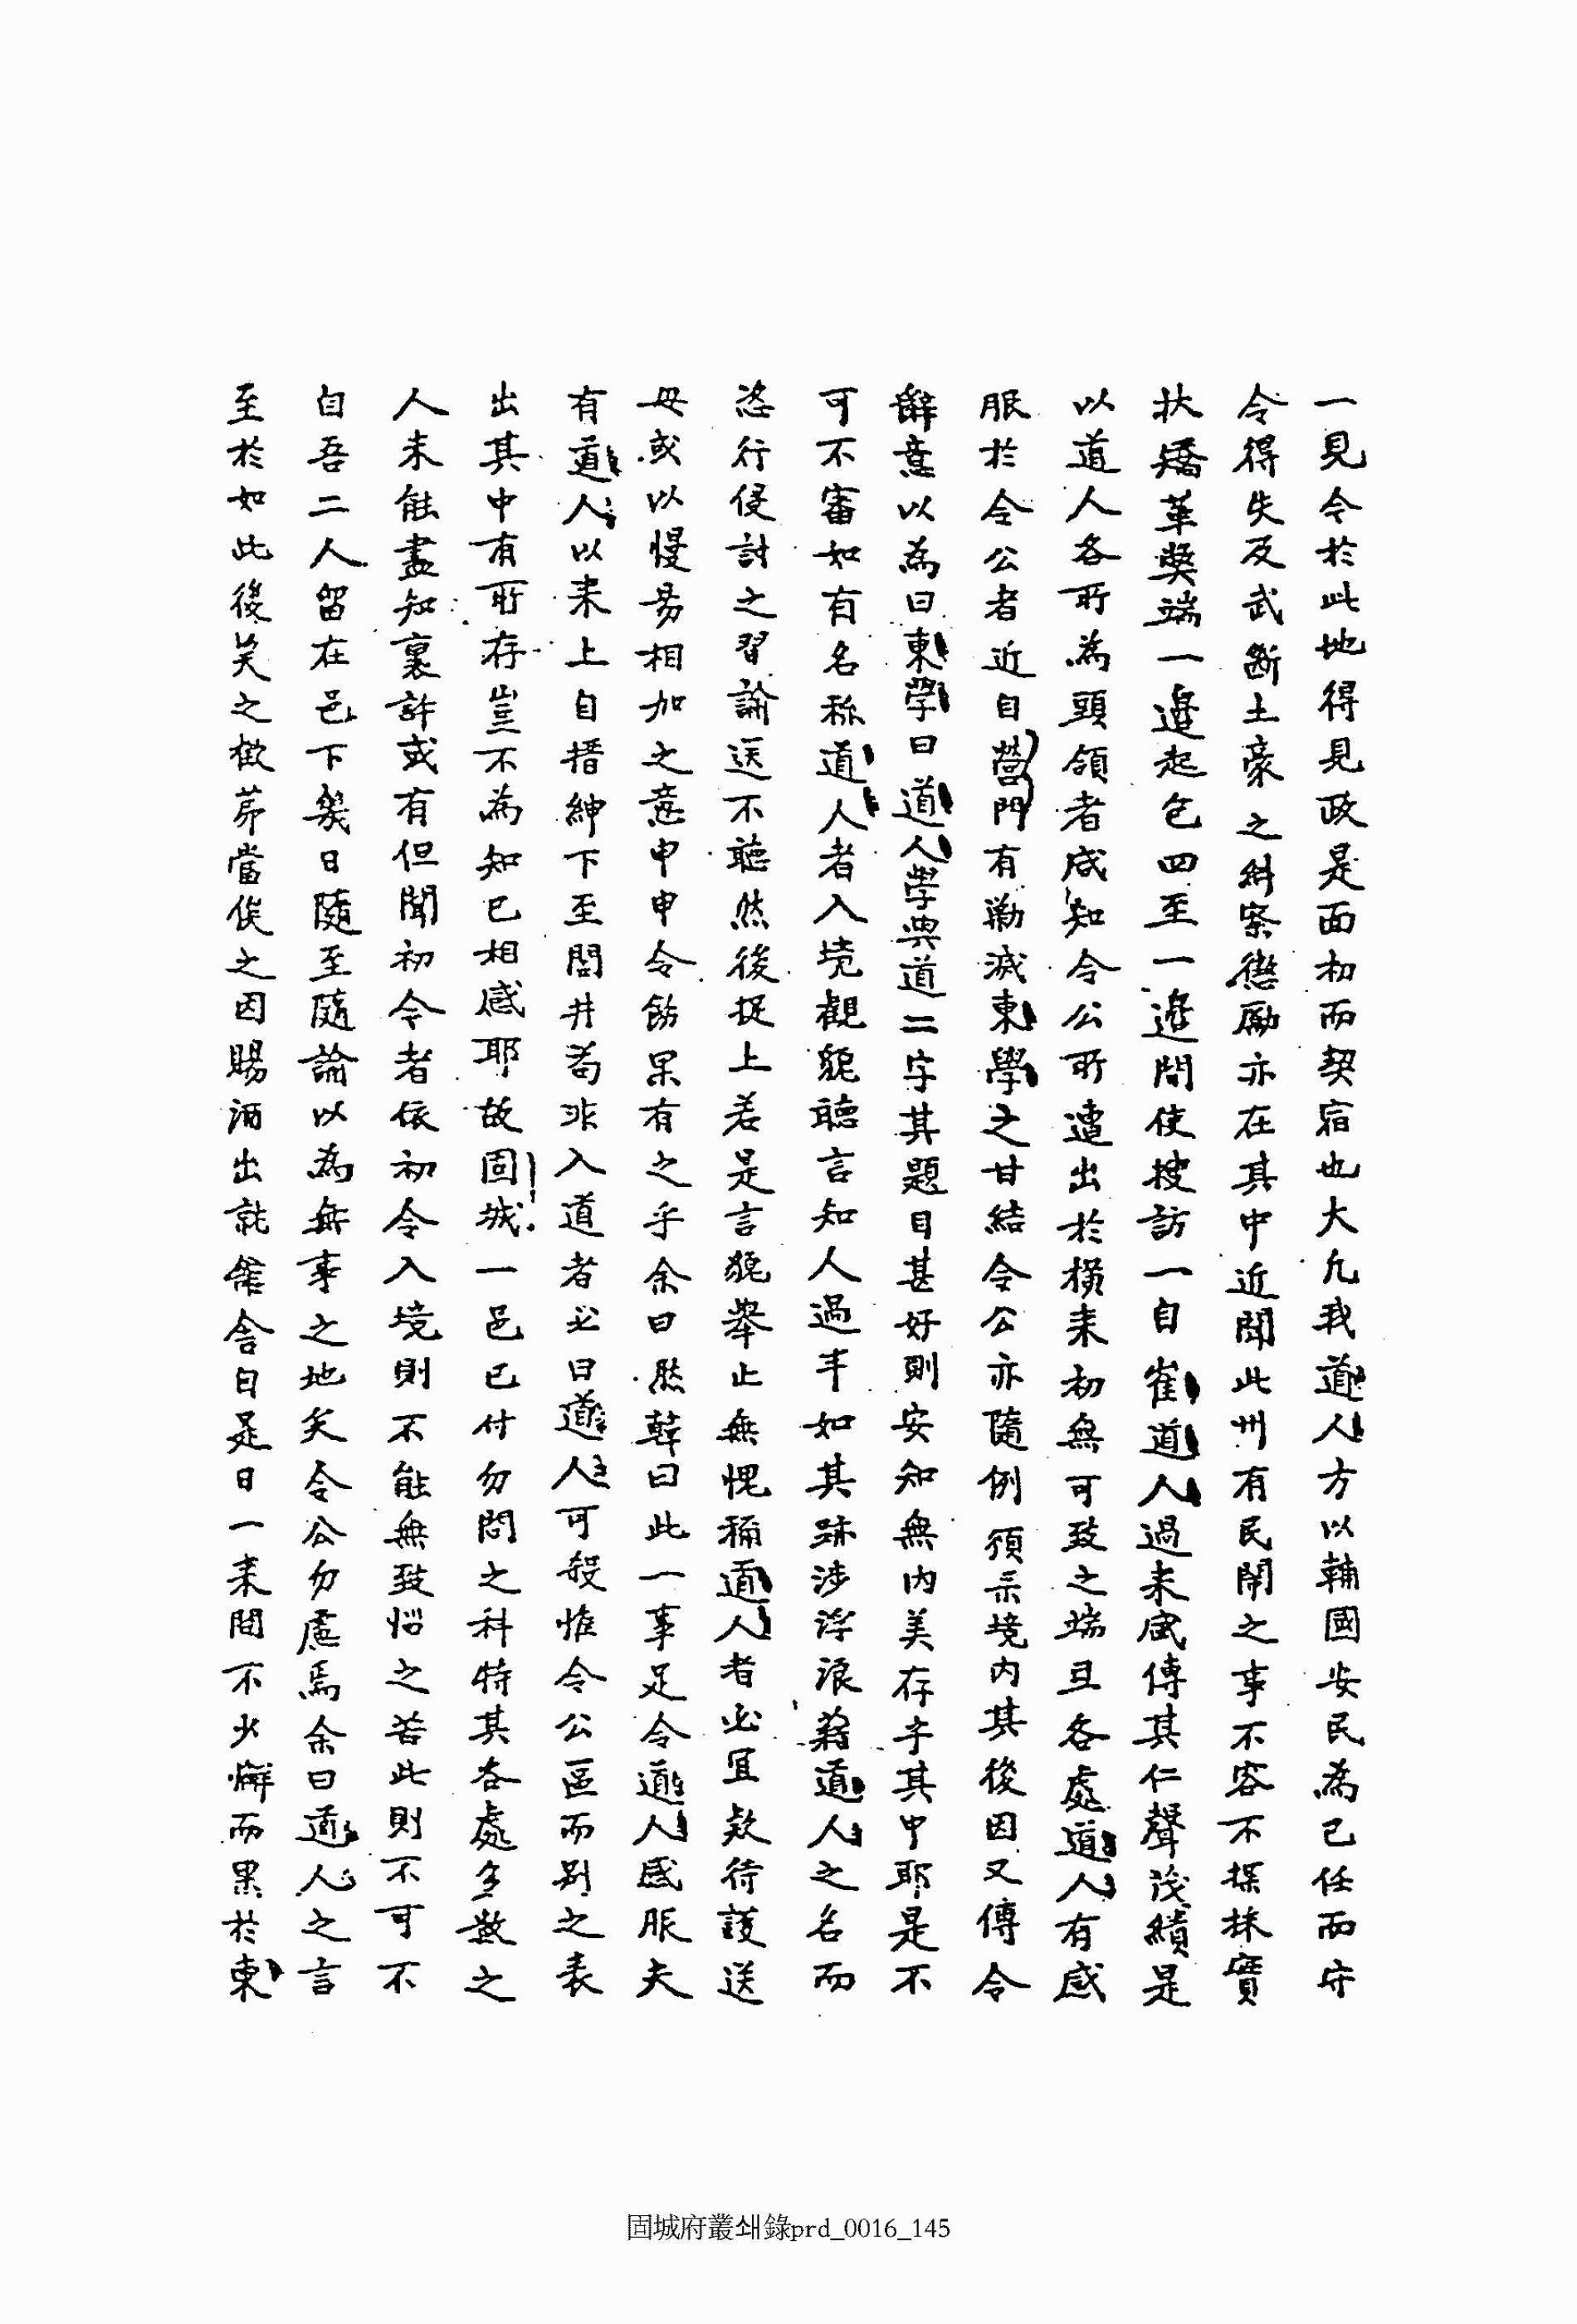 一見令於此地得見政是面初而契宿也大凡我道人方以輔國安民為己任而守
令得失及武斷土豪之糾察懲勵亦在其中近聞此州有民鬧之事不容不探採實
狀矯革獘端一邊起包四至一邊間使搜訪一自崔道人過来咸傳其仁聲茂績是
以道人各所為頭領者咸知令公所遭出於横来初無可致之端且各處道人有感
服於令公者近自營門有勦滅東學之甘結令公亦隨例須示境内其後因又傳令
辭意以為曰東學曰道人學與道二字其題目甚好則安知無内美存乎其中耶是不
可不審如有名称道人者入境觀貌聽言知人過半如其跡涉浮浪藉道人之名而
恣行侵討之習諭送不聽然後捉上若是言貌擧止無愧稱道人者必宜欵待護送
毋或以慢易相加之意申申令飭果有之乎余曰然韓曰此一事足令道人感服夫
有道人以来上自搢紳下至閭井苟非入道者必曰道人可殺惟令公區而别之表
出其中有所存豈不為知己相感耶故固城一邑已付勿問之科特其各處多數之
人未能盡知裏許或有但聞初令者依初令入境則不能無致惱之苦此則不可不
自吾二人留在邑下幾日隨至隨論以為無事之地矣令公勿慮焉余曰道人之言
至於如此後笑之欵茅當俟之因賜酒出就舘舍自是日一来間不少懈而果於東
固城府叢쇄錄prd_0016_145